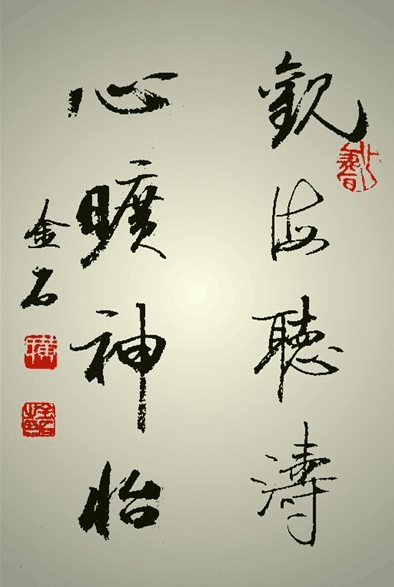 觀海聽濤
心曠神怡
金石